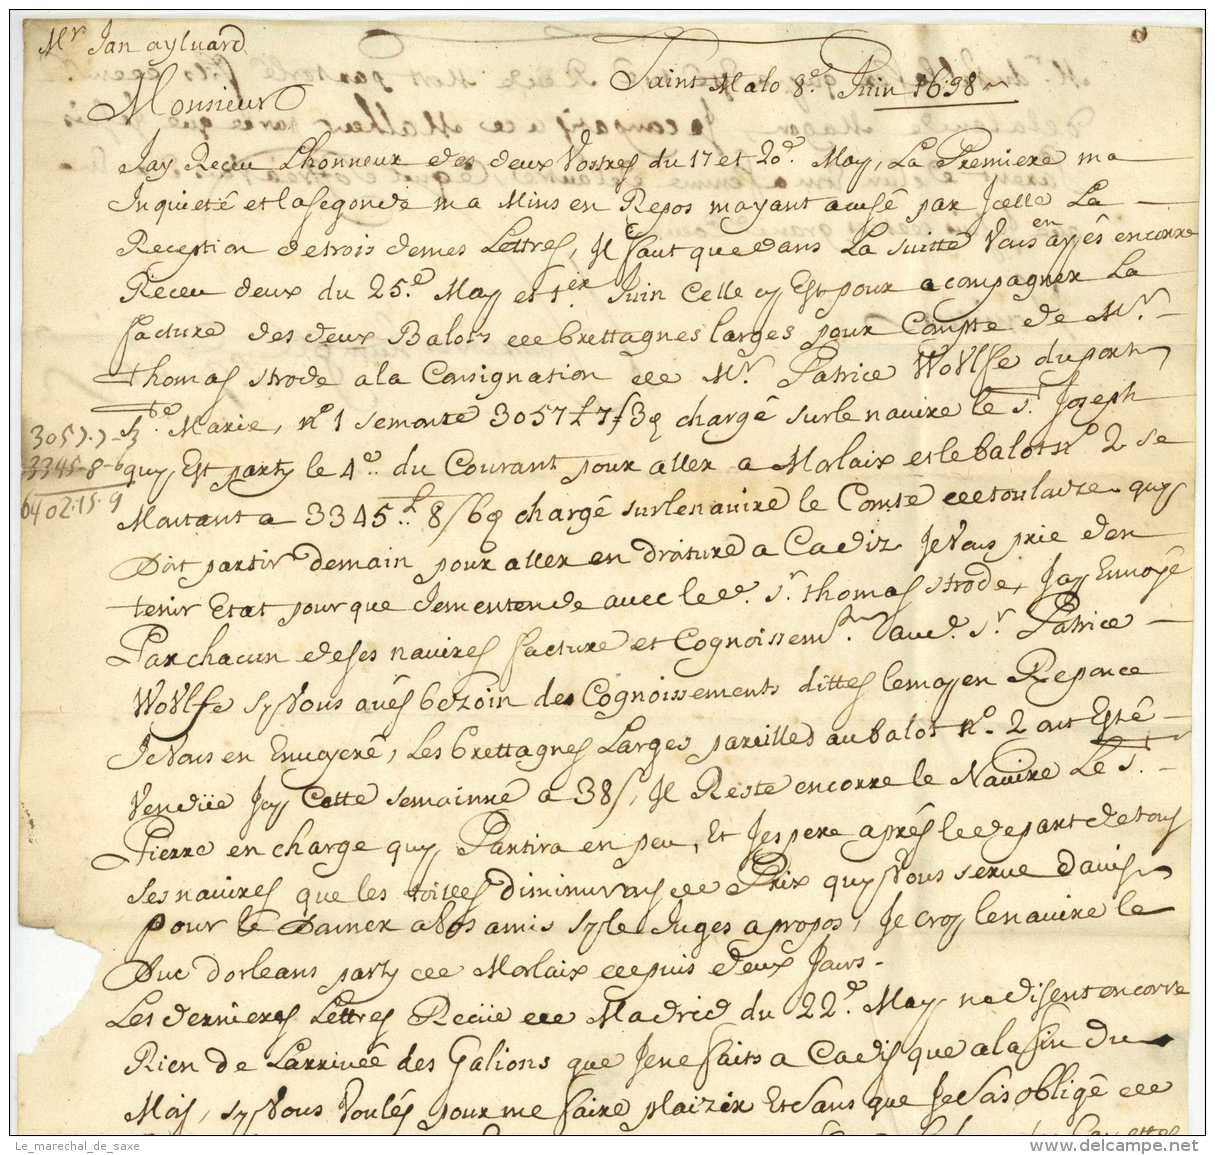 Mr Jan aylward
Saint Malo 8e Juin 1698
Monsieur
Jay Receu Lhonneur des deux Vostres du 17 et 20e May, La Premiere ma
Inquieté et la segonde ma Mins en Repos mayant acusé par Jcelle La
Reception de trois de mes Lettres, Jl faut que dans La suitte Vous en ayés encorre
Receu deux du 25e May et 1er Juin Celle cy Est pour acompagner La
facture des deux Balots de brettagnes larges pour Compte de Mr
Thomas strode a la Consignation de Mr Patrice Wolfe du port
Ste Marie, no 1 se monte 3057 ₶ 7 s 3 d chargé sur le navire le st Joseph
3057.7-3
3345-8-6
6402.15.9
quy Est party le 4e du Courant pour aller a Morlaix et le balot no 2 se
Montant a 3345 ₶ 8 s 6 d chargé sur le navire le Comte de toulouze quy
Doit partir demain pour aller en droiture a Cadiz Je Vous prie den
tenir Etat pour que Jementende avec le d. sr thomas strode, Jay Envoyé
Par chacun de ses navires facture et Cognoissemt aud. sr Patrice
Wolfe sy Vous avés bezoin des Cognoissements dittes le moyen Reponce
Je Vous en Envoyeré, Les brettagnes Larges pareilles au balot no 2 ont Esté
Vendüe Jcy Cette semainne a 38 s, Jl Reste encorre le Navire Le st
Pierre en charge quy Partira en peu, Et Jespere aprés le depart de tous
ses navires que les toilles diminuron de Prix quy Vous serve davis
pour le Donner a Vos amis sy le Juges a propos, Je croy le navire le
Duc dorleans party de Morlaix depuis deux Jours.
Les dernieres Lettres Reciie de Madrid du 22e May ne disent encorre
Rien de Larrivée des Galions que Jene faits a Cadis que a la fin du
Mois, sy Vous Voulés pour me faire plaizir Et sans que Je sois obligé de
Le_marechal_de_saxe
www.delcampe.net